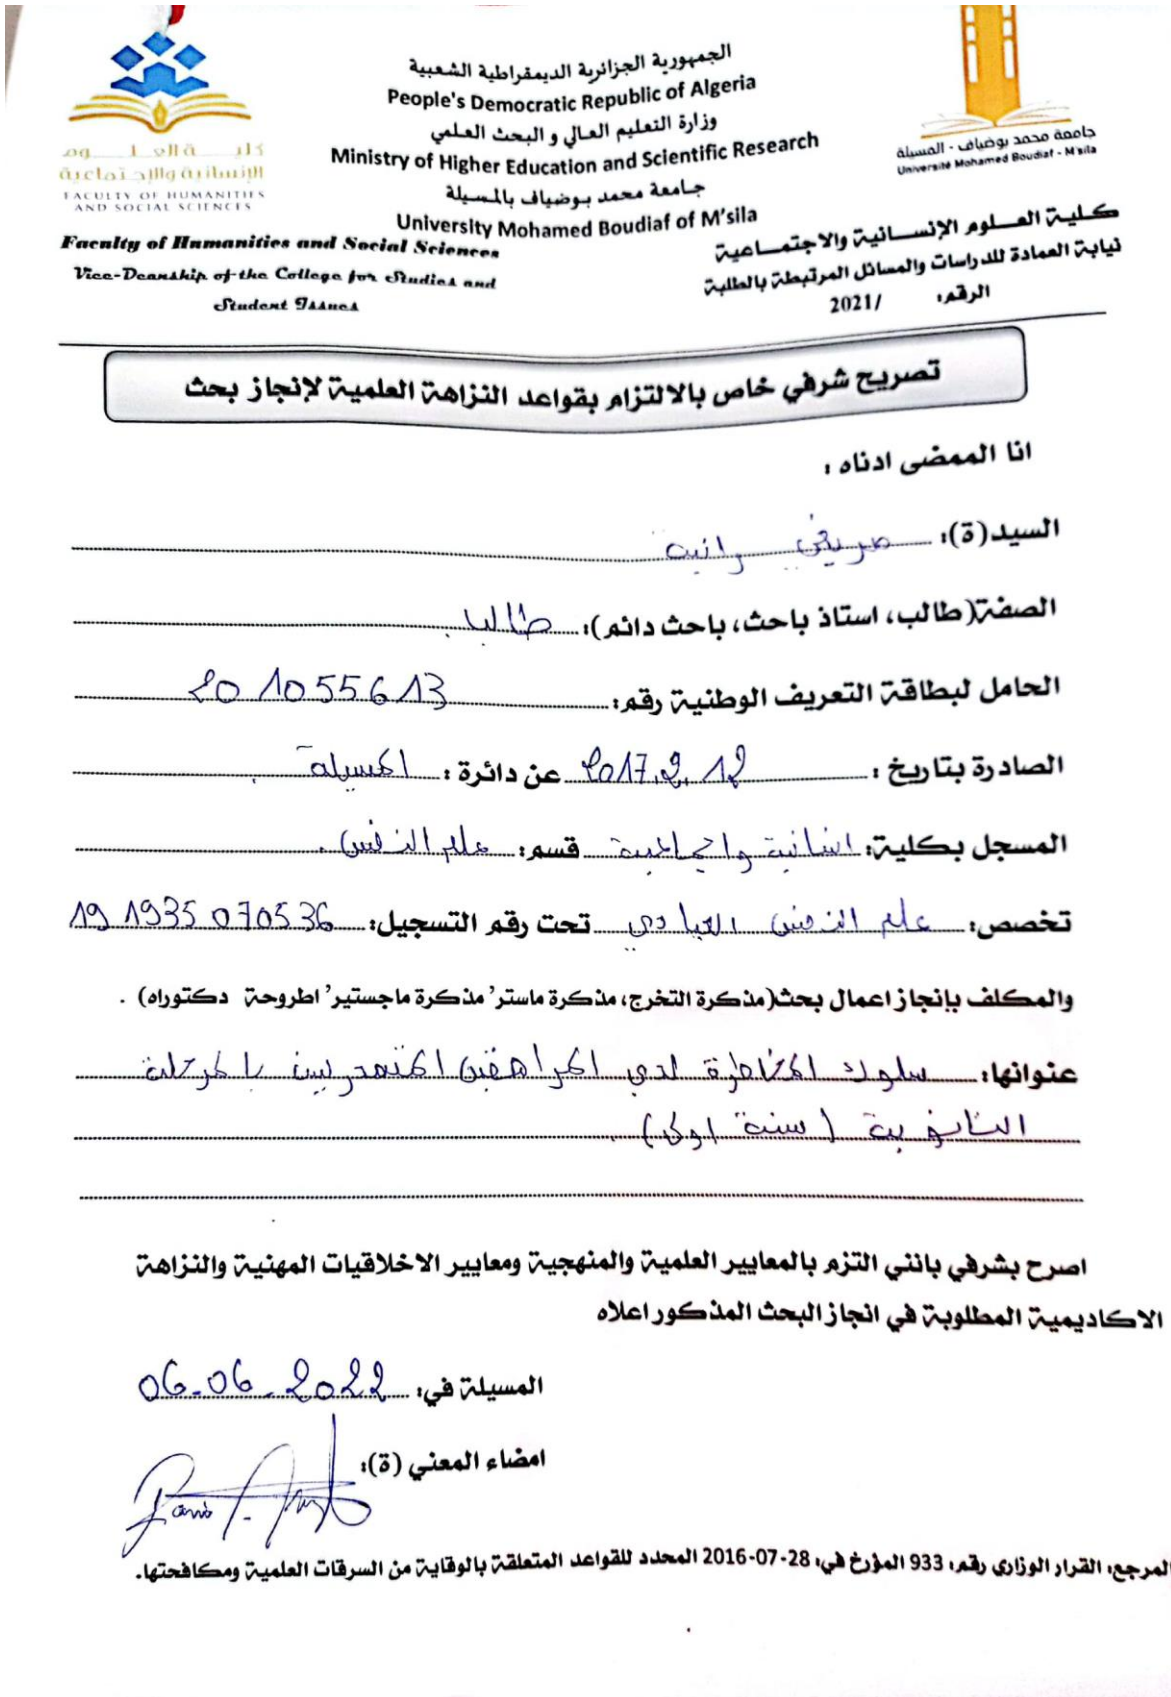 الجمهورية الجزائرية الديمقراطية الشعبية
People's Democratic Republic of Algeria
وزارة التعليم العالي و البحث العلمي
Ministry of Higher Education and Scientific Research
جامعة محمد بوضياف بالمسيلة
University Mohamed Boudiaf of M'sila
كليـة العلـوم
الإنسانية والاجتماعية
FACULTY OF HUMANITIES
AND SOCIAL SCIENCES
Faculty of Humanities and Social Sciences
Vice-Deanship of the College for Studies and
Student Issues
جامعة محمد بوضياف - المسيلة
Université Mohamed Boudiaf - M'sila
كـليـة العـــلـوم الإنســـانية والاجتمـــاعية
نيابة العمادة للدراسات والمسائل المرتبطة بالطلبة
الرقم: /2021
تصريح شرفي خاص بالالتزام بقواعد النزاهة العلمية لإنجاز بحث
انا الممضى ادناه :
السيد(ة): صريفي رانية
الصفة(طالب، استاذ باحث، باحث دائم): طالب
الحامل لبطاقة التعريف الوطنية رقم: 201055613
الصادرة بتاريخ : 2017.2.12 عن دائرة : المسيلة
المسجل بكلية: انسانية واجتماعية قسم: علم النفس
تخصص: علم النفس العيادي تحت رقم التسجيل: 191935070536
والمكلف بإنجاز اعمال بحث(مذكرة التخرج، مذكرة ماستر' مذكرة ماجستير' اطروحة دكتوراه) .
عنوانها: سلوك المخاطرة لدى المراهقين المتمدرسين بالمرحلة
الثانوية (سنة اولى)
اصرح بشرفي بانني التزم بالمعايير العلمية والمنهجية ومعايير الاخلاقيات المهنية والنزاهة
الاكاديمية المطلوبة في انجاز البحث المذكور اعلاه
المسيلة في: 06-06-2022
امضاء المعني (ة):
المرجع: القرار الوزاري رقم: 933 المؤرخ في: 28-07-2016 المحدد للقواعد المتعلقة بالوقاية من السرقات العلمية ومكافحتها.